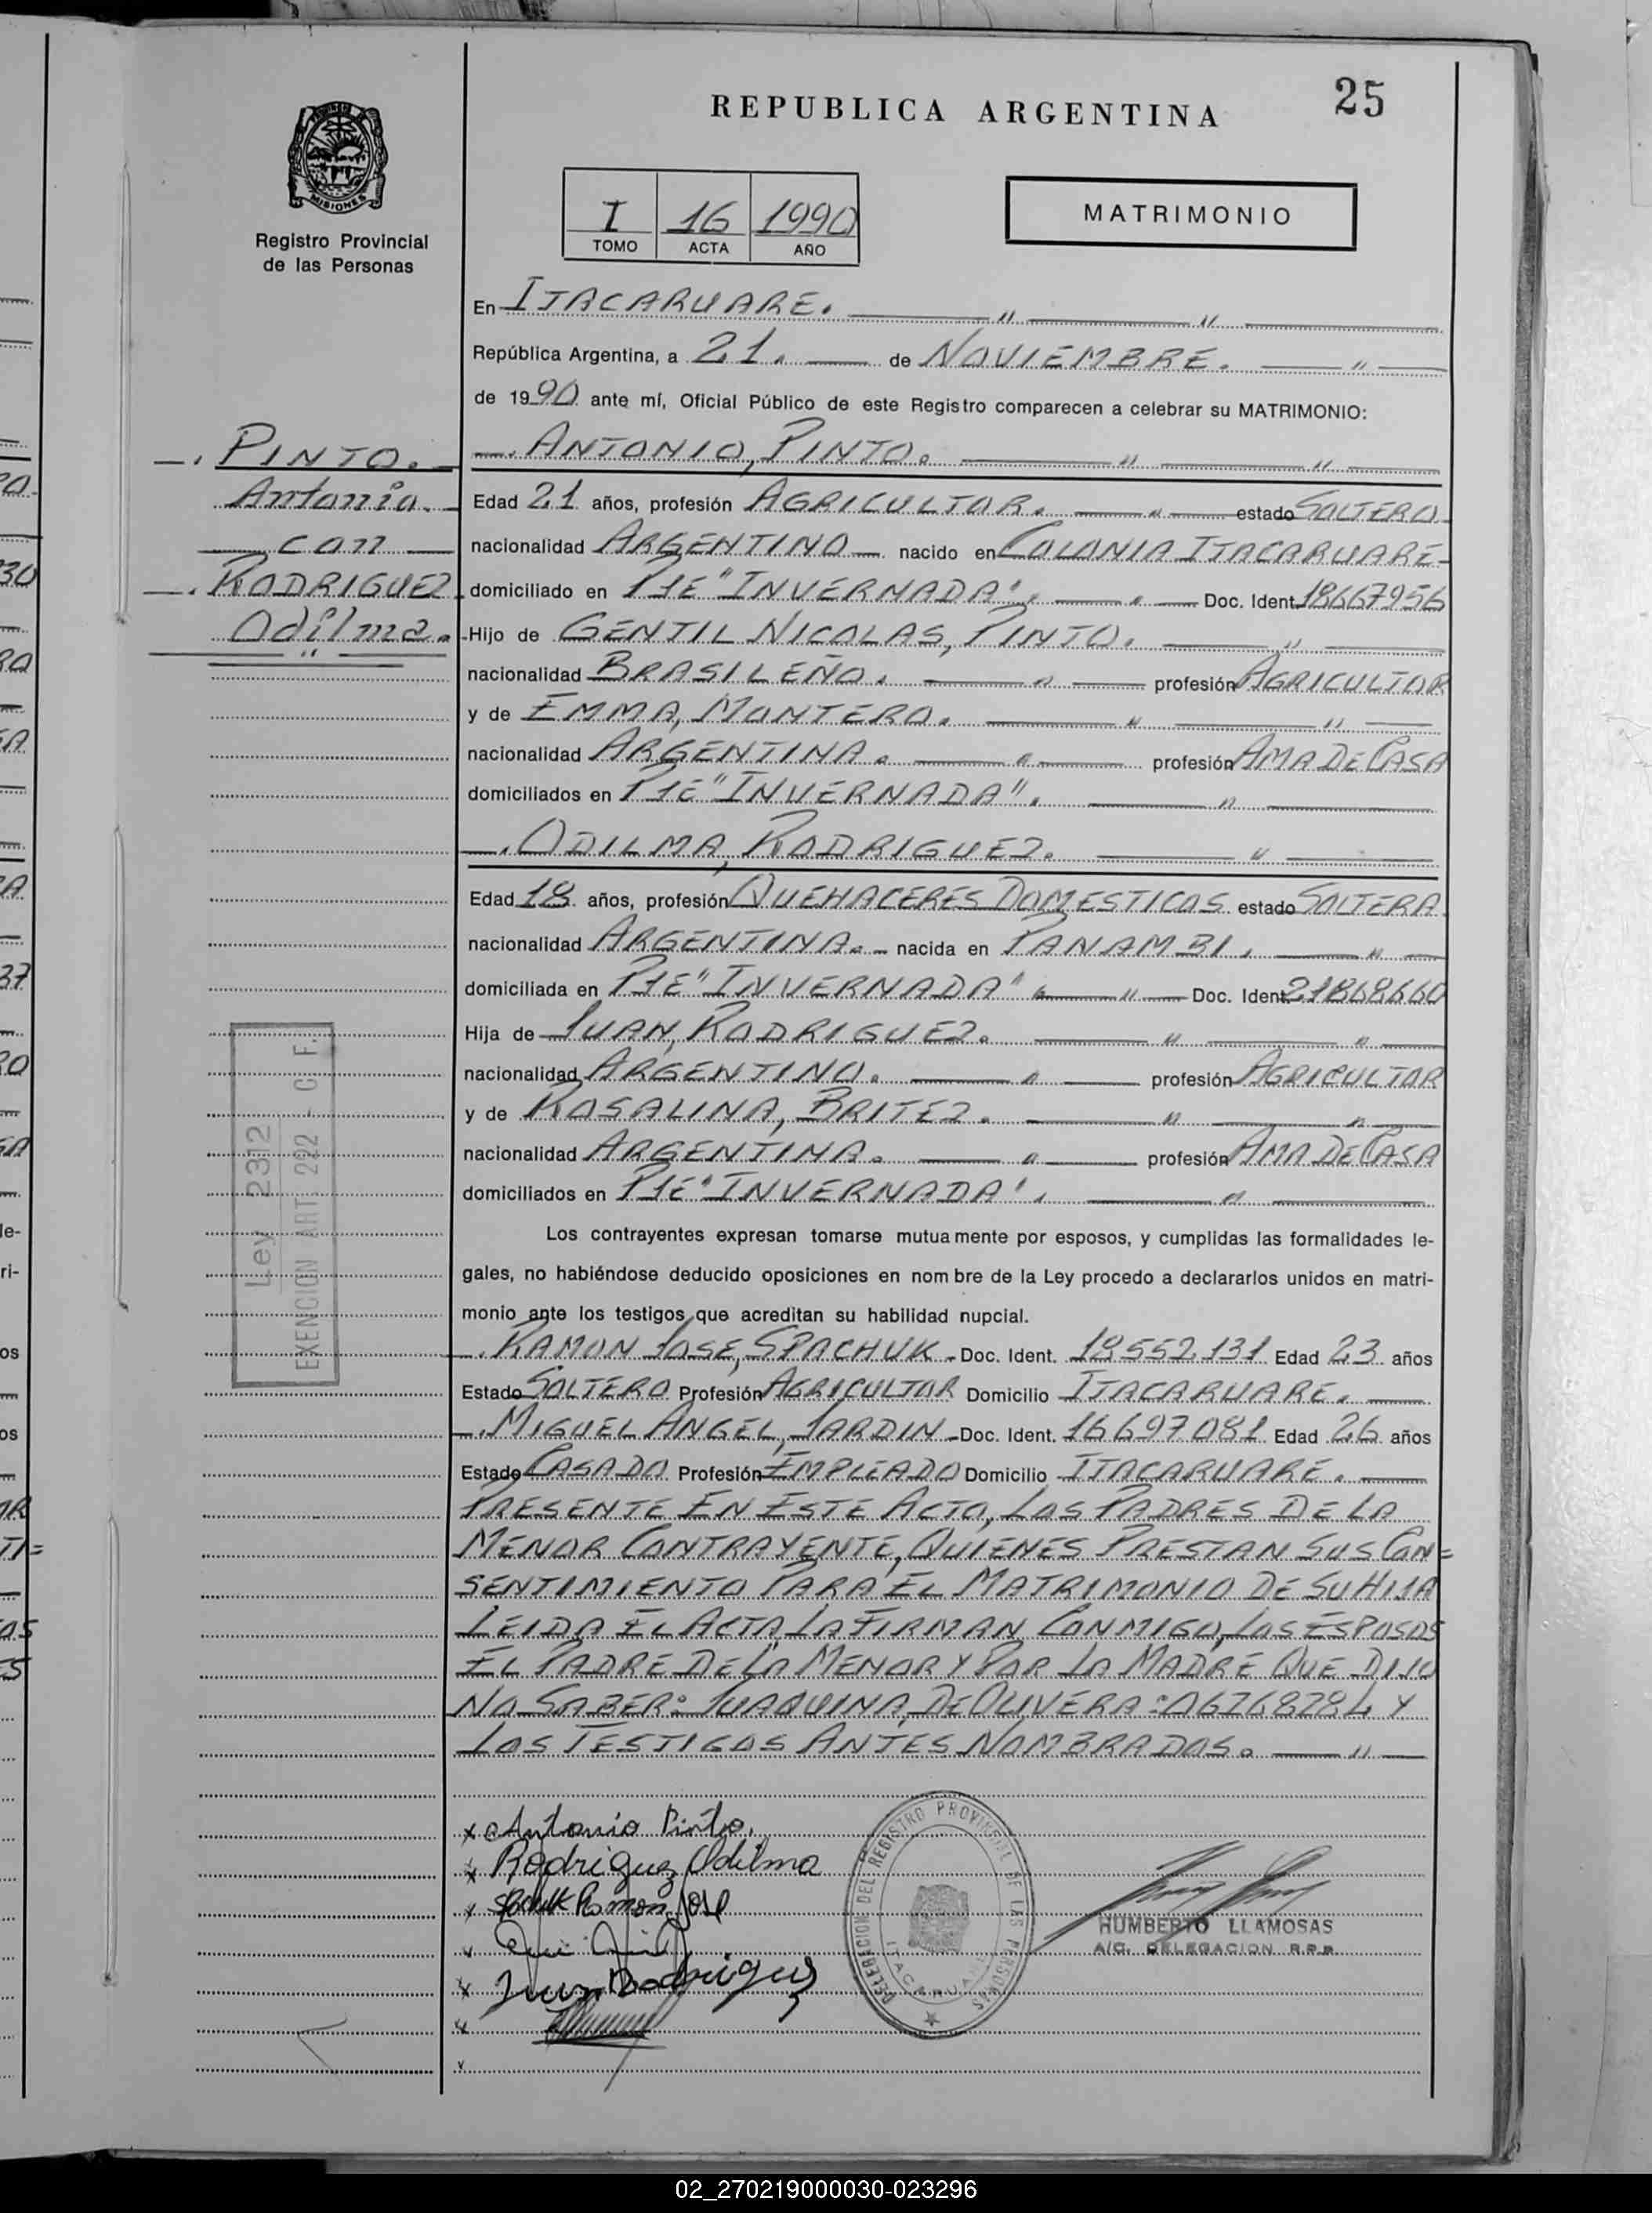 REPUBLICA ARGENTINA
25
MISIONES
Registro Provincial
de las Personas
I 16 1990
TOMO ACTA AÑO
MATRIMONIO
En ITACARUARE.
República Argentina, a 21. de NOVIEMBRE.
de 1990 ante mí, Oficial Público de este Registro comparecen a celebrar su MATRIMONIO:
ANTONIO, PINTO.
PINTO.
Antonio.
con
RODRIGUEZ
Odilma.
Edad 21 años, profesión AGRICULTOR. estado SOLTERO
nacionalidad ARGENTINO nacido en COLONIA ITACARUARE
domiciliado en PJE "INVERNADA". Doc. Ident. 18667956
Hijo de GENTIL NICOLAS, PINTO.
nacionalidad BRASILEÑO. profesión AGRICULTOR
y de EMMA, MONTERO.
nacionalidad ARGENTINA. profesión AMA DE CASA
domiciliados en PJE "INVERNADA".
ODILMA, RODRIGUEZ.
Edad 18 años, profesión QUEHACERES DOMESTICOS estado SOLTERA
nacionalidad ARGENTINA. nacida en PANAMBI.
domiciliada en PJE "INVERNADA" Doc. Ident. 21868660
Hija de JUAN, RODRIGUEZ.
nacionalidad ARGENTINO. profesión AGRICULTOR
y de ROSALINA, BRITEZ.
nacionalidad ARGENTINA. profesión AMA DE CASA
domiciliados en PJE "INVERNADA".
Los contrayentes expresan tomarse mutuamente por esposos, y cumplidas las formalidades le-
gales, no habiéndose deducido oposiciones en nombre de la Ley procedo a declararlos unidos en matri-
monio ante los testigos que acreditan su habilidad nupcial.
RAMON JOSE, SPACHUK Doc. Ident. 18552131 Edad 23 años
Estado SOLTERO Profesión AGRICULTOR Domicilio ITACARUARE.
MIGUEL ANGEL, JARDIN Doc. Ident. 16697081 Edad 26 años
Estado CASADO Profesión EMPLEADO Domicilio ITACARUARE.
PRESENTE EN ESTE ACTO, LOS PADRES DE LA
MENOR CONTRAYENTE, QUIENES PRESTAN SUS CON=
SENTIMIENTO PARA EL MATRIMONIO DE SU HIJA
LEIDA EL ACTA LA FIRMAN CONMIGO, LOS ESPOSOS
EL PADRE DE LA MENOR Y POR LA MADRE QUE DIJO
NO SABER: JUAQUINA, DE OLIVERA: 06268284 Y
LOS TESTIGOS ANTES NOMBRADOS.
Ley 2312
EXENCION ART. 292 - C F.
x Antonio Pinto.
x Rodriguez Odilma
x Ramon Jose
x Juan Rodriguez
DELEGACION DEL REGISTRO PROVINCIAL DE LAS PERSONAS
ITACARUARE
HUMBERTO LLAMOSAS
A/C. DELEGACION R.P.P.
02_270219000030-023296